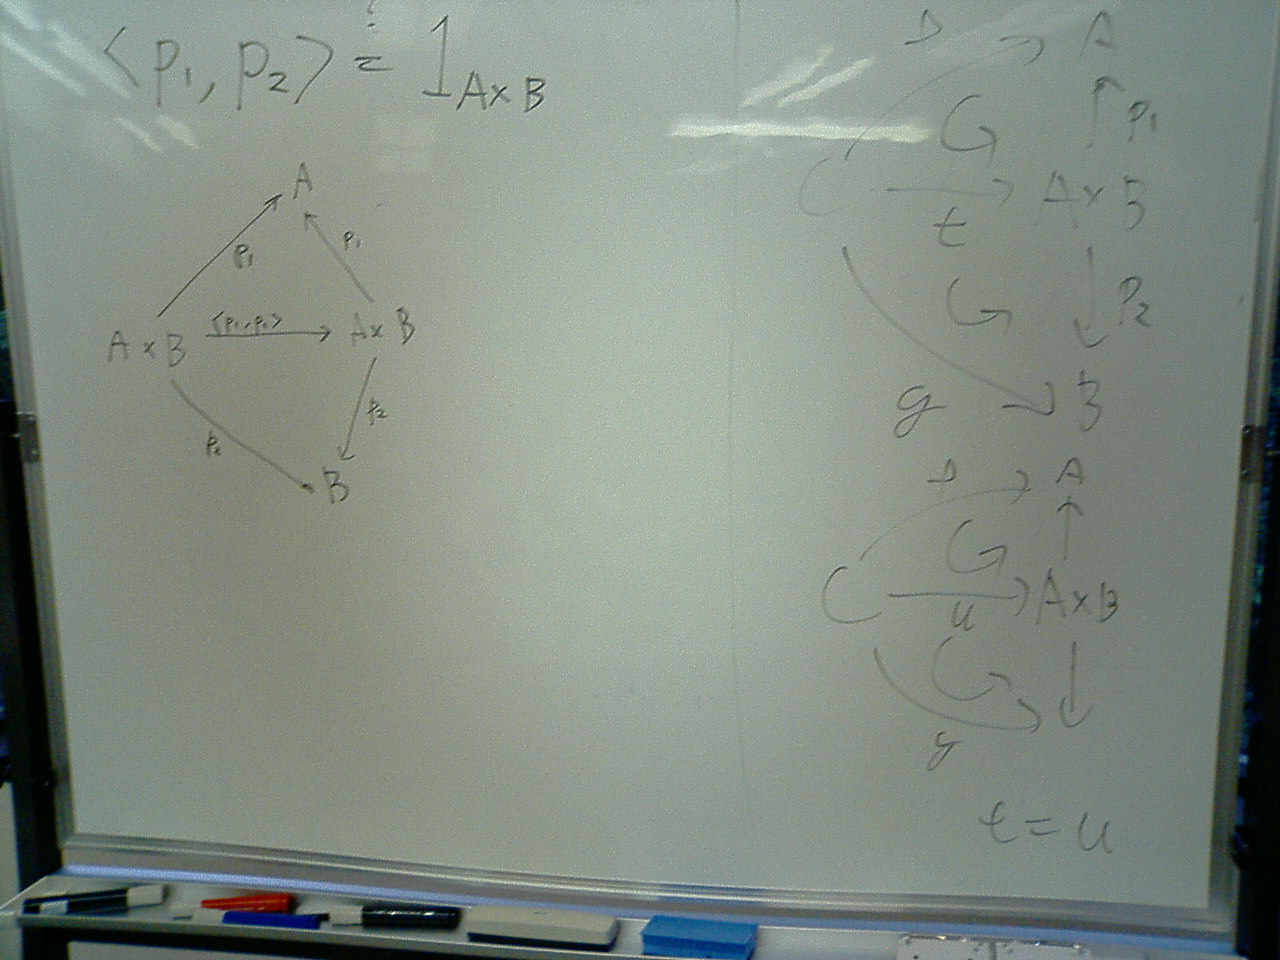 ⟨p₁, p₂⟩ ≟ 1_{A×B}
A
p₁ p₁
A×B ⟨p₁, p₂⟩ A×B
p₂ p₂
B
A
p₁
C t A×B
p₂
g B
A
C u A×B
g
t = u